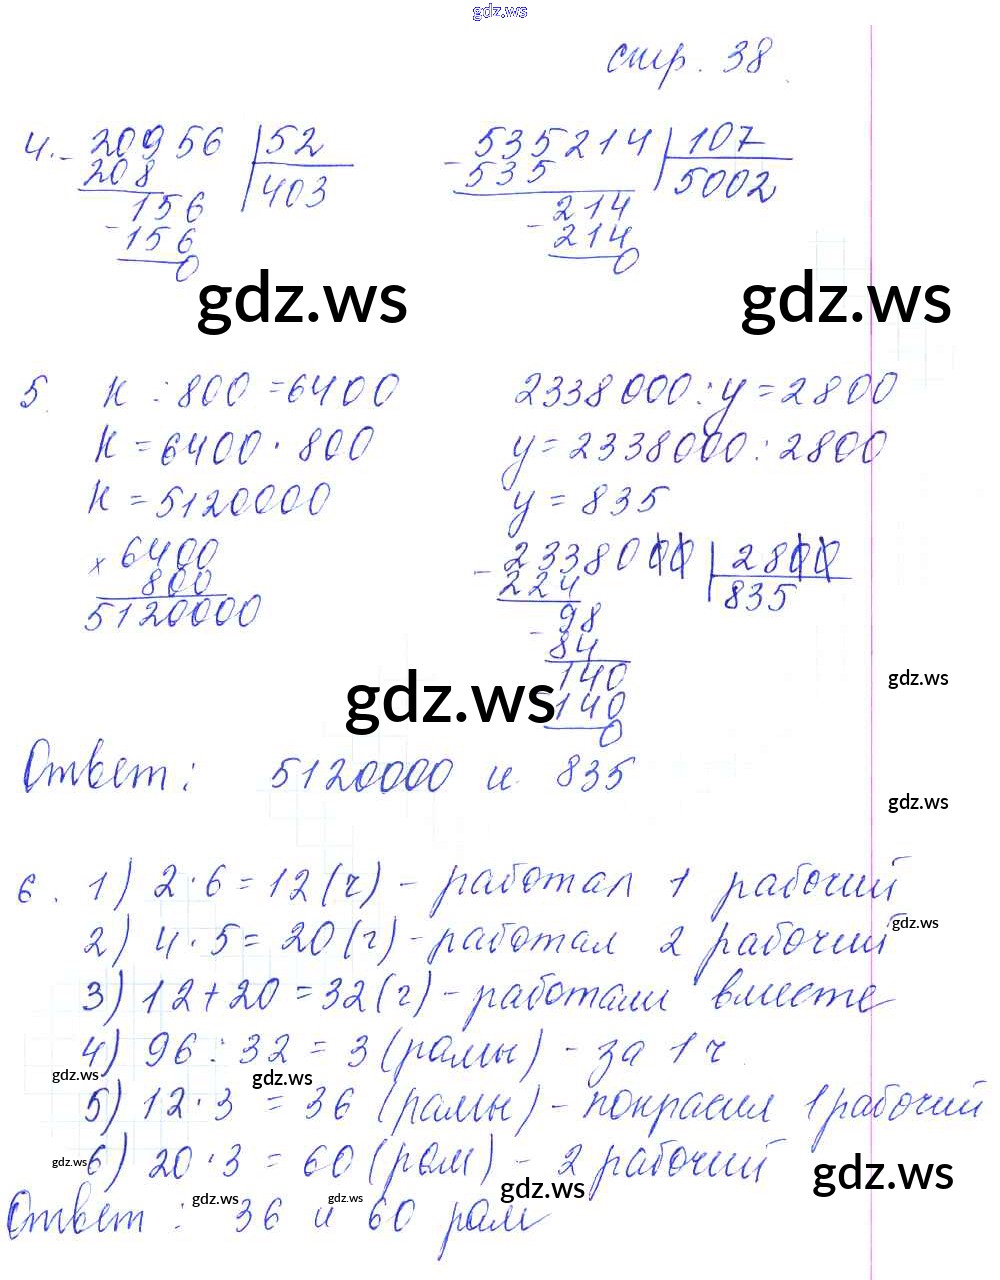 gdz.ws
стр. 38
4. - 20956 | 52
208 403
- 156
156
0
- 535214 | 107
535 5002
- 214
214
0
gdz.ws
gdz.ws
5. к : 800 = 6400
к = 6400 · 800
к = 5120000
× 6400
800
5120000
2338000 : у = 2800
у = 2338000 : 2800
у = 835
- 2338000 | 2800
224 835
- 98
84
140
140
0
gdz.ws
gdz.ws
Ответ: 5120000 и 835
gdz.ws
6. 1) 2 · 6 = 12 (ч) - работал 1 рабочий
gdz.ws
2) 4 · 5 = 20 (г) - работал 2 рабочий
3) 12 + 20 = 32 (г) - работали вместе
4) 96 : 32 = 3 (рамы) - за 1 ч
gdz.ws
gdz.ws
5) 12 · 3 = 36 (рамы) - покрасил 1 рабочий
gdz.ws
6) 20 · 3 = 60 (рам) - 2 рабочий
gdz.ws
gdz.ws
gdz.ws
gdz.ws
Ответ : 36 и 60 рам